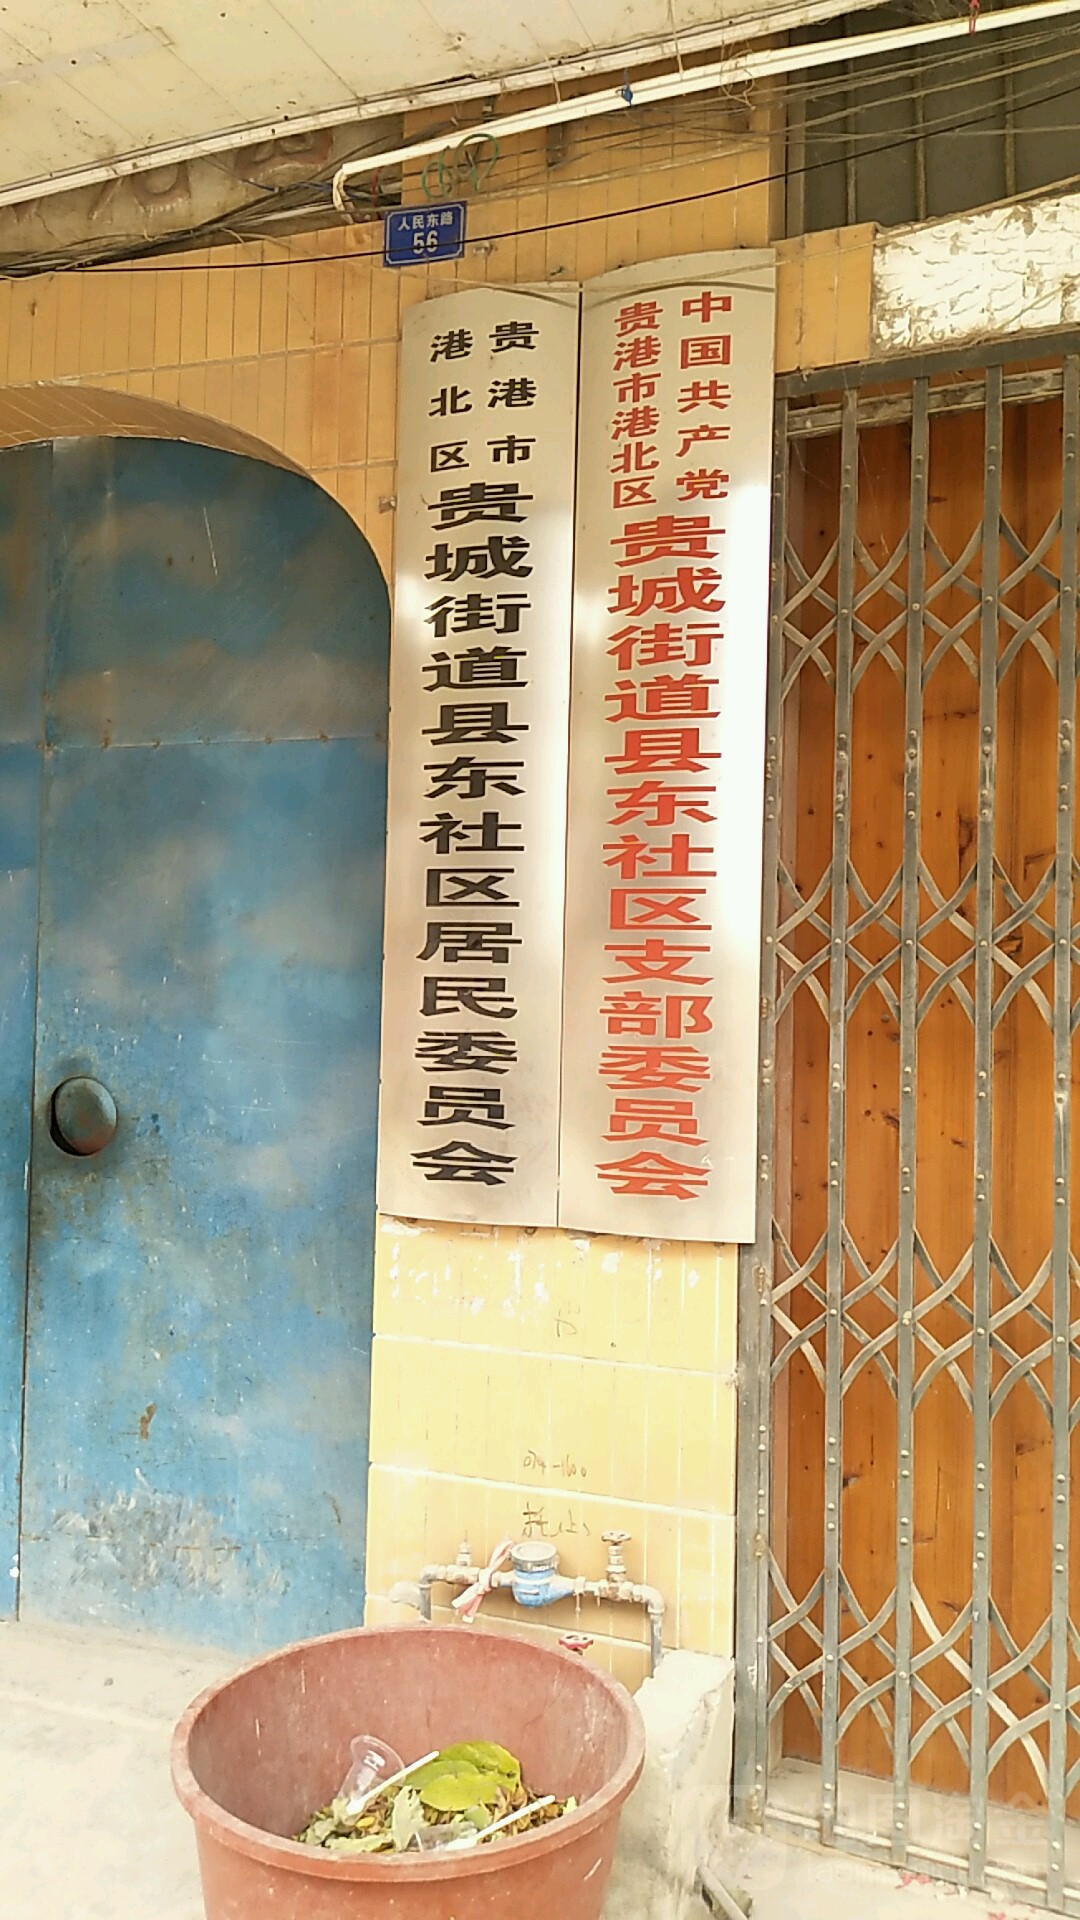 人民东路
56
中国共产党
贵港市港北区
贵城街道县东社区支部委员会
贵港市
港北区
贵城街道县东社区居民委员会